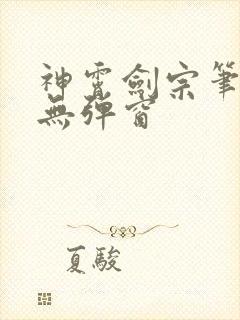 神霄劍宗筆
無彈窗
夏駿